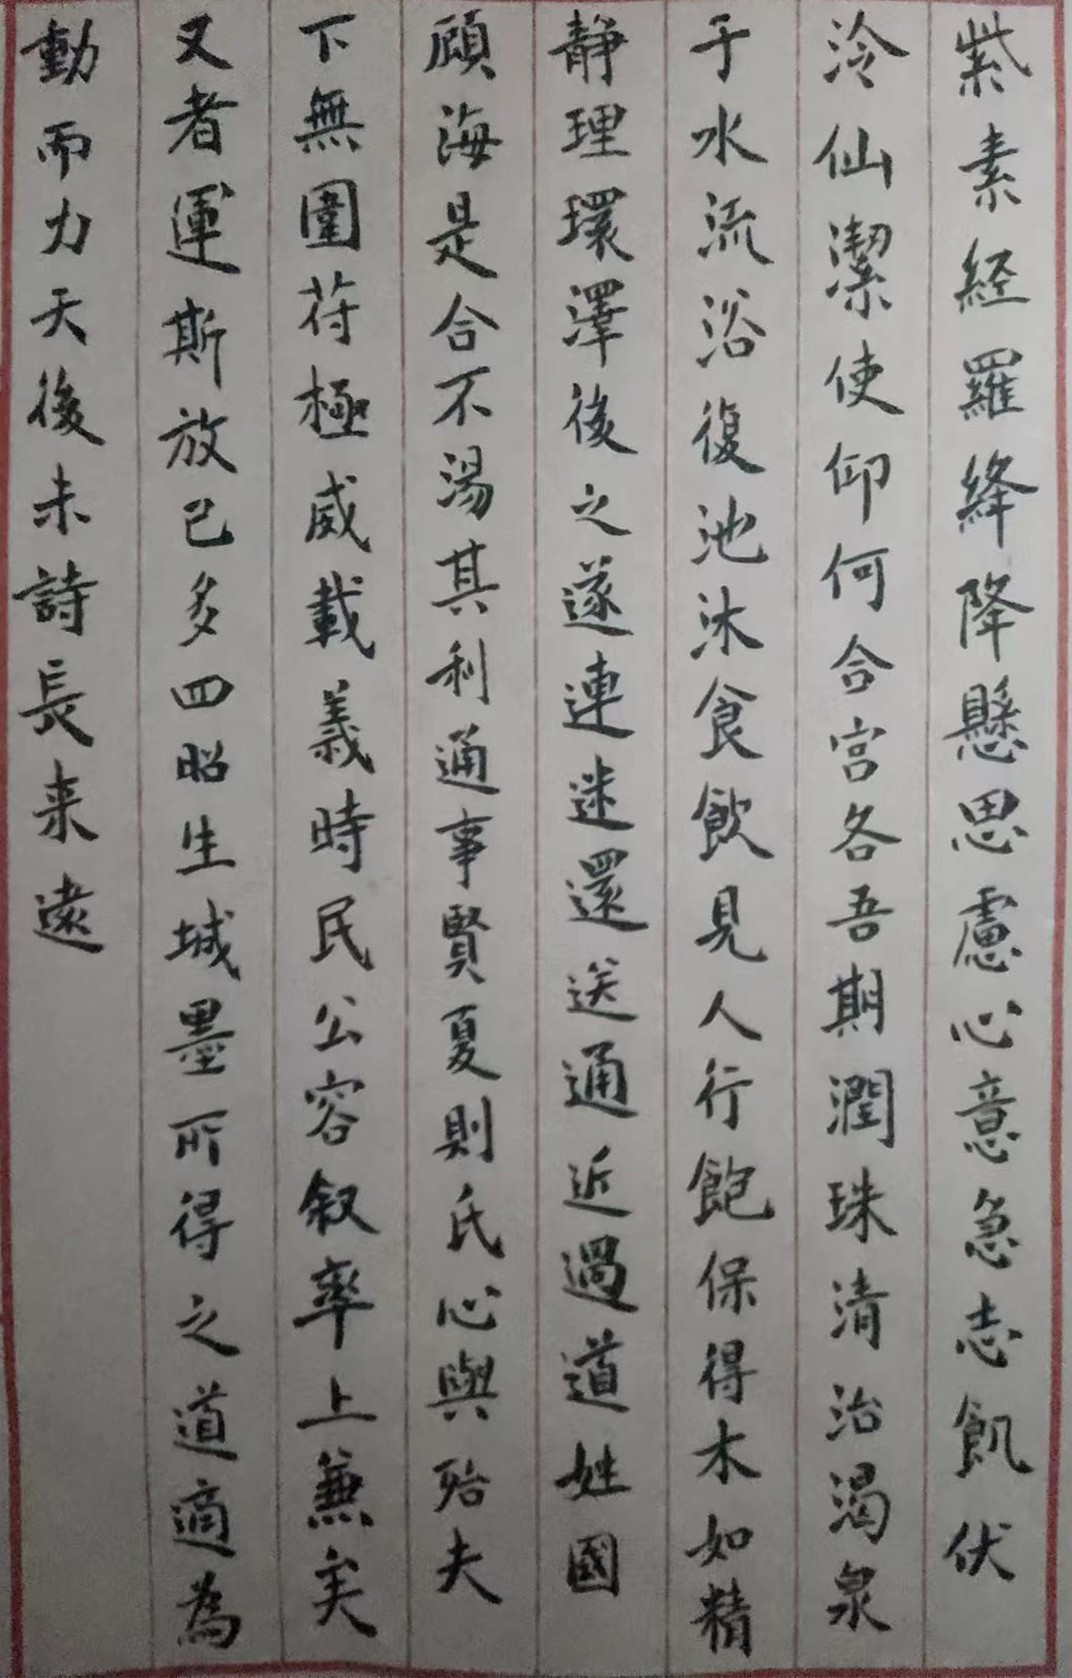 紫素経羅絳降懸思慮心意急志飢伏
泠仙潔使仰何合宮各吾期潤珠清治渴泉
于水流浴復池沐食飲見人行飽保得木如精
静理環澤後之遂連迷還送通近過道姓國
顧海是合不湯其利通事賢夏則氏心與殆夫
下無圍苻極威載義時民公容叙率上兼矣
又者運斯放已多四昭生城墨所得之道適為
動而力天後未詩長来遠